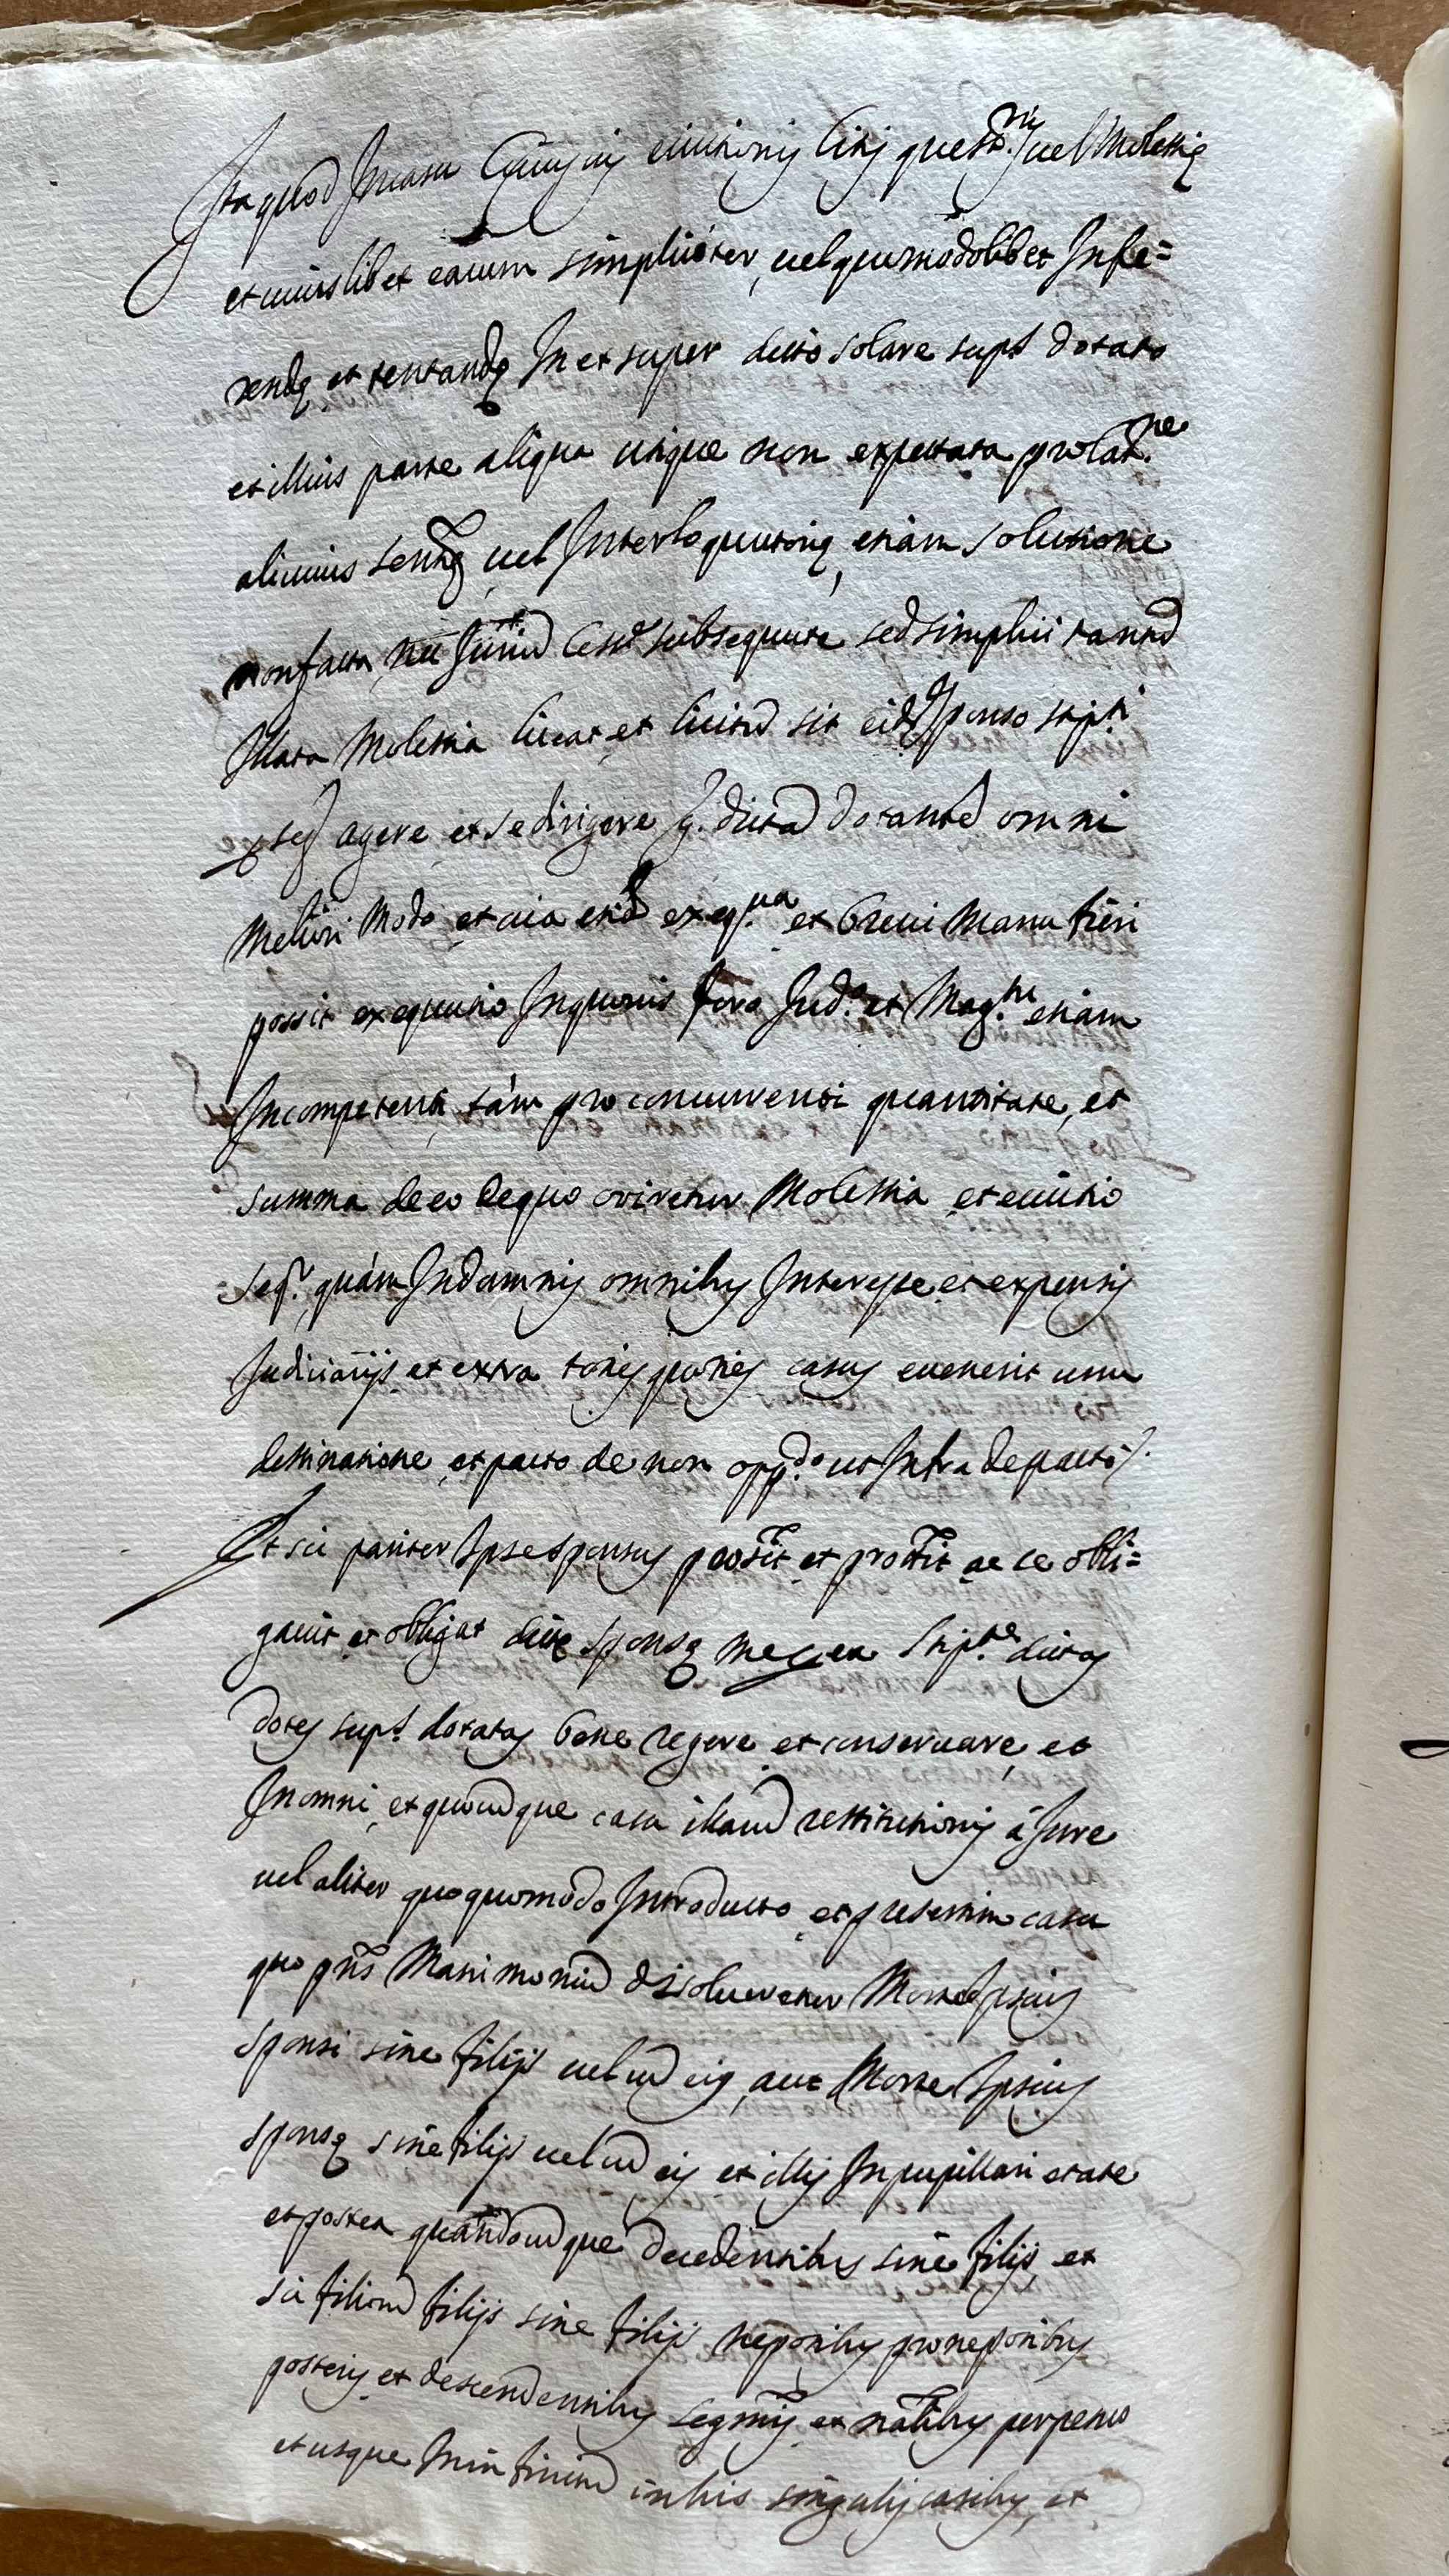 Ita quod In casu evitionis litis quest.nis vel Molestię
et cuius libet earum simpliciter, vel quomodolibet Infe=
rendę et tentandę In et super dicto solare sup.t dotato
et illius parte aliqua usque non expectata prolat.ne
alicuius sentę vel Interloquutorię, etiam solutione
non facta, nec Iuriū cess.e subsequuta sed simplici tantū
Illata Molestia liceat et licitū sit eidē Sponso stip.ti
agere et se dirigere dictā dotantē omni
Meliori Modo et via etiā exeq.va et brevi Manu fieri
possit exequutio In quovis foro Iud.e et Mag.tu etiam
Incompetenti, tàm pro concurrenti quantitate, et
summa de eo de quo oriretur Molestia et evictio
seq.r quàm In damnis omnibus Interesse et expensis
Iudiciarijs et extra toties quoties casus evenerit cum
destinatione et pacto de non opp.do ut Infra de pacto
Et sic pariter Ipse sponsus promisit et promittit ac se obli=
gavit et obligat dictę sponsę stip.te dictas
dotes sup.t dotatas bene regere et conservare, et
In omni, et quocūque casu illarū restitutionis à Iure
vel aliter quoquomodo Introducto et presertim casu
quo pñs Matrimoniū dissolveretur Morte Ipsius
sponsi sine filijs vel cū eis, aut Morte Ipsius
sponsę sine filijs vel cū eis et illis In pupillari etate
et postea quandocūque decedentibus sine filijs, et
sic filiorū filijs sine filijs nepotibus pronepotibus
posteris et descendentibus legmis et nãlibus perpetuo
et usque In Infinitū in his singulis casibus, et